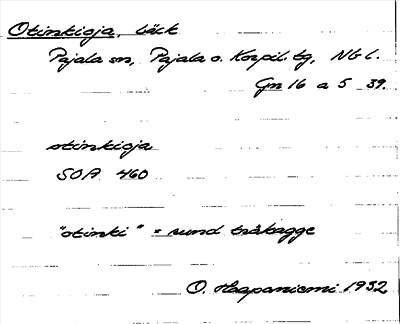 Otinkioja, bäck
Pajala sn, Pajala o. Korpil. tg, Nb l.
Gm 16 a 5 39.
otinkioja
SOA 460
"otinki" = rund träbagge
O. Haapaniemi 1932